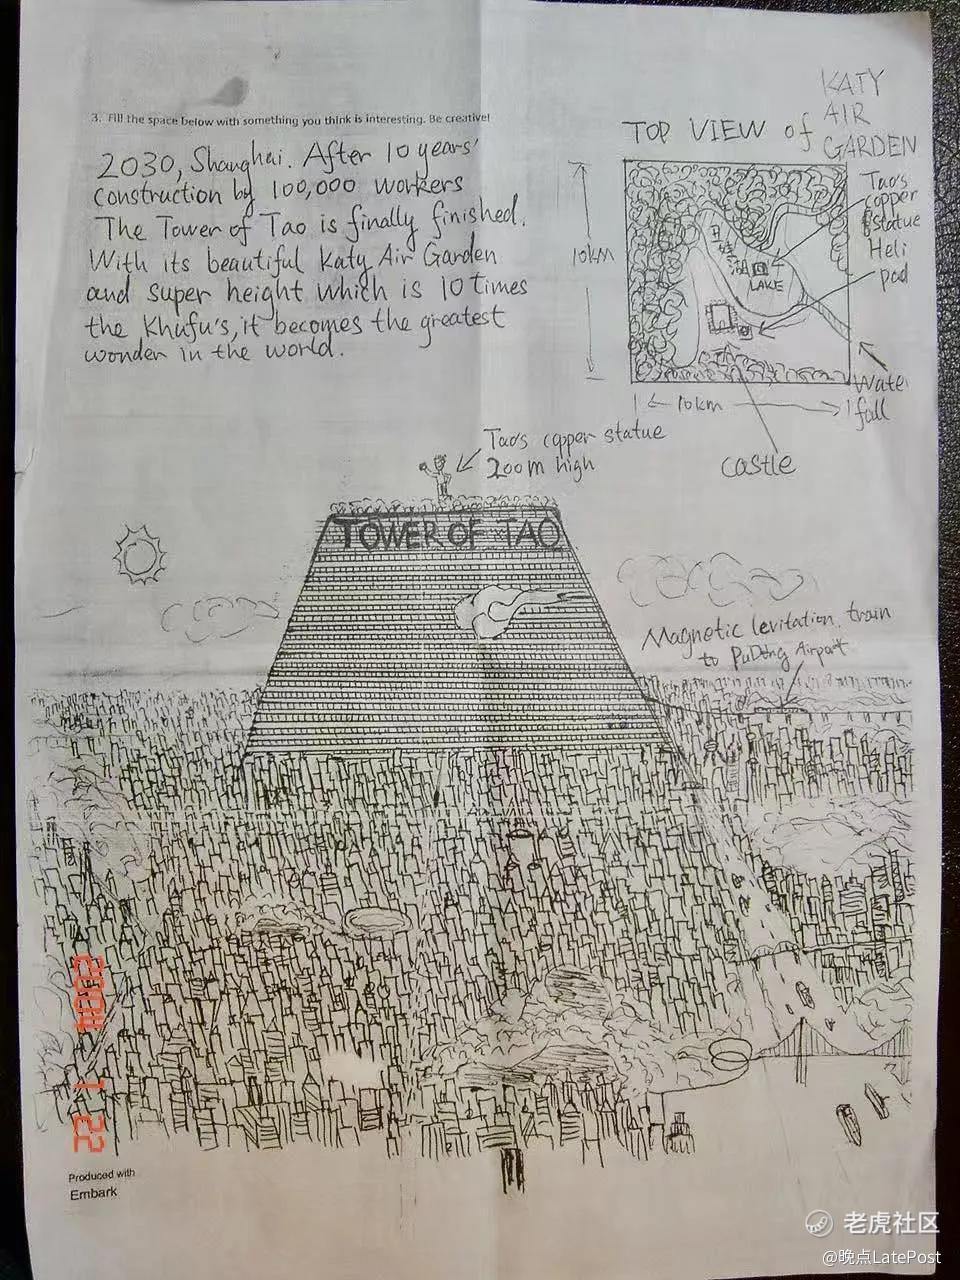 3. Fill the space below with something you think is interesting. Be creative!
2030, Shanghai. After 10 years'
construction by 100,000 workers
The Tower of Tao is finally finished.
With its beautiful Katy Air Garden
and super height which is 10 times
the Khufu's, it becomes the greatest
wonder in the world.
TOP VIEW of
KATY
AIR
GARDEN
10km
Tao's
copper
statue
Heli
pad
LAKE
Water
fall
10km
castle
Tao's copper statue
200m high
TOWER OF TAO
Magnetic levitation train
to PuDong Airport
2004 1 22
Produced with
Embark
老虎社区
@晚点LatePost